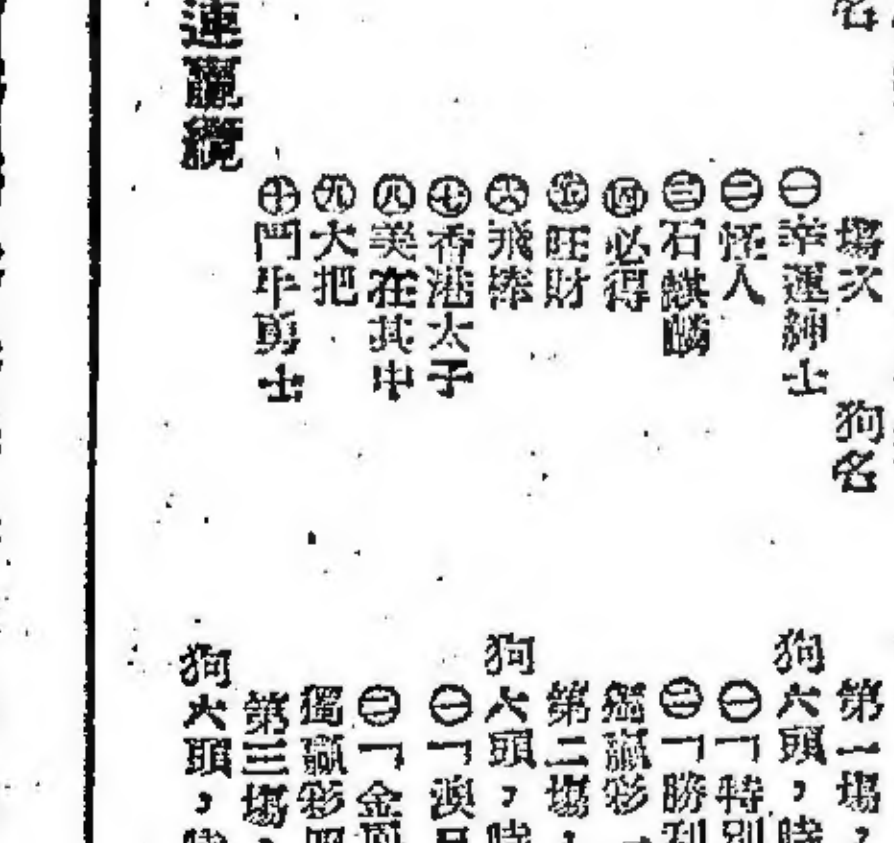 名
場次 狗名
㊀幸運紳士
㊁怪人
㊂石麒麟
㊃必得
㊄旺財
㊅飛棒
㊆香港太子
㊇美在其中
㊈大把
㊉鬥牛勇士
連贏纜
第一場，
狗六頭，時
㊀「特別
㊁「勝利
獨贏彩
第二場，
狗六頭，時
㊀「澳
㊁「金
獨贏彩
第三場，
狗六頭，時